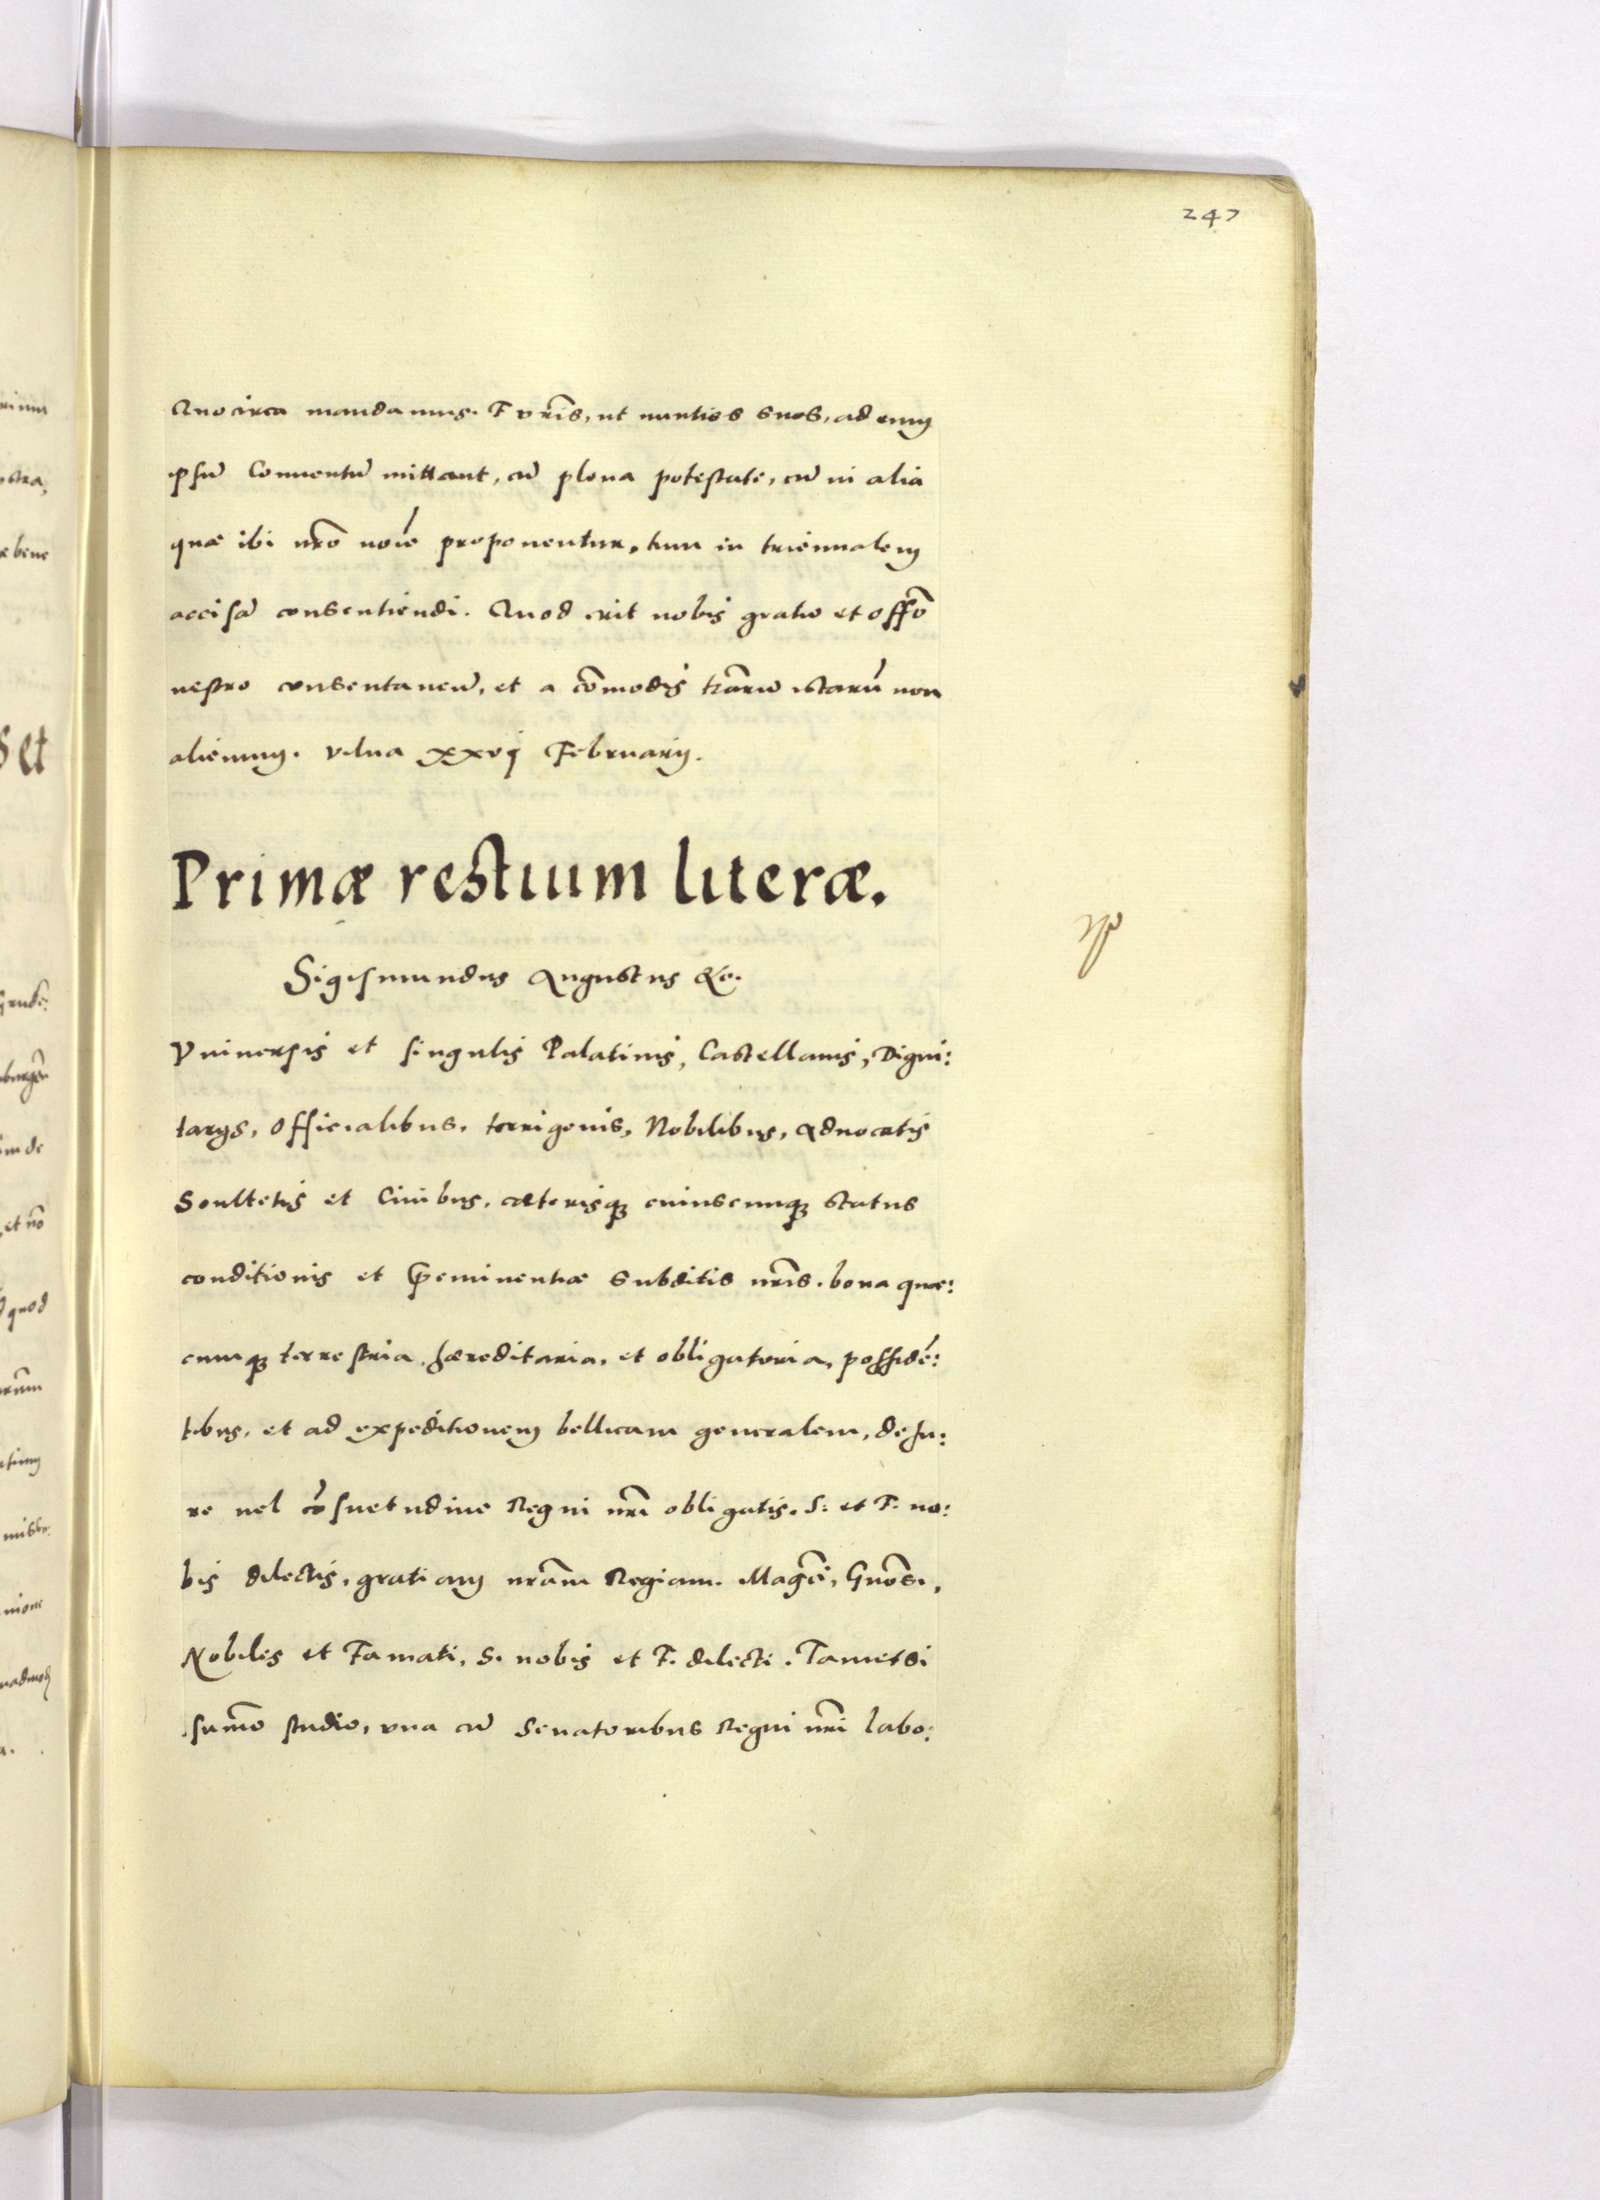 247
Quocirca mandamus. F vr̃is, ut nuntios suos, ad eum
ipsũ Conuentũ mittant, cũ plena potestate, cũ in alia
quæ ibi nr̃o noĩe proponentur, tum in triennalem
accisã consentiendi. Quod erit nobis gratũ et offõ
uestro consentaneũ, et a cõmodis tr̃arum istarũ non
alienum. Vilna xxvij Februarij.
Primæ restium literæ.
Sigismundus Augustus &c.
Vniuersis et singulis Palatinis, Castellanis, Digni:
tarijs, Officialibus, terrigenis, Nobilibus, Aduocatis
Scultetis et Ciuibus, cæterisq; cuiuscunq; status
conditionis et p̃eminentiæ subditis nr̃is. bona quæ:
cunq; terrestria, hæreditaria, et obligatoria, possidẽ:
tibus, et ad expeditionem bellicam generalem, de Ju:
re uel cõsuetudine Regni nr̃i obligatis. S. et F. no:
bis dilectis, gratiam nr̃am Regiam. Magci, Gnosi,
Nobiles et Famati, S. nobis et F. dilecti. Tametsi
sum̃o studio, vna cũ Senatoribus Regni nr̃i labo: